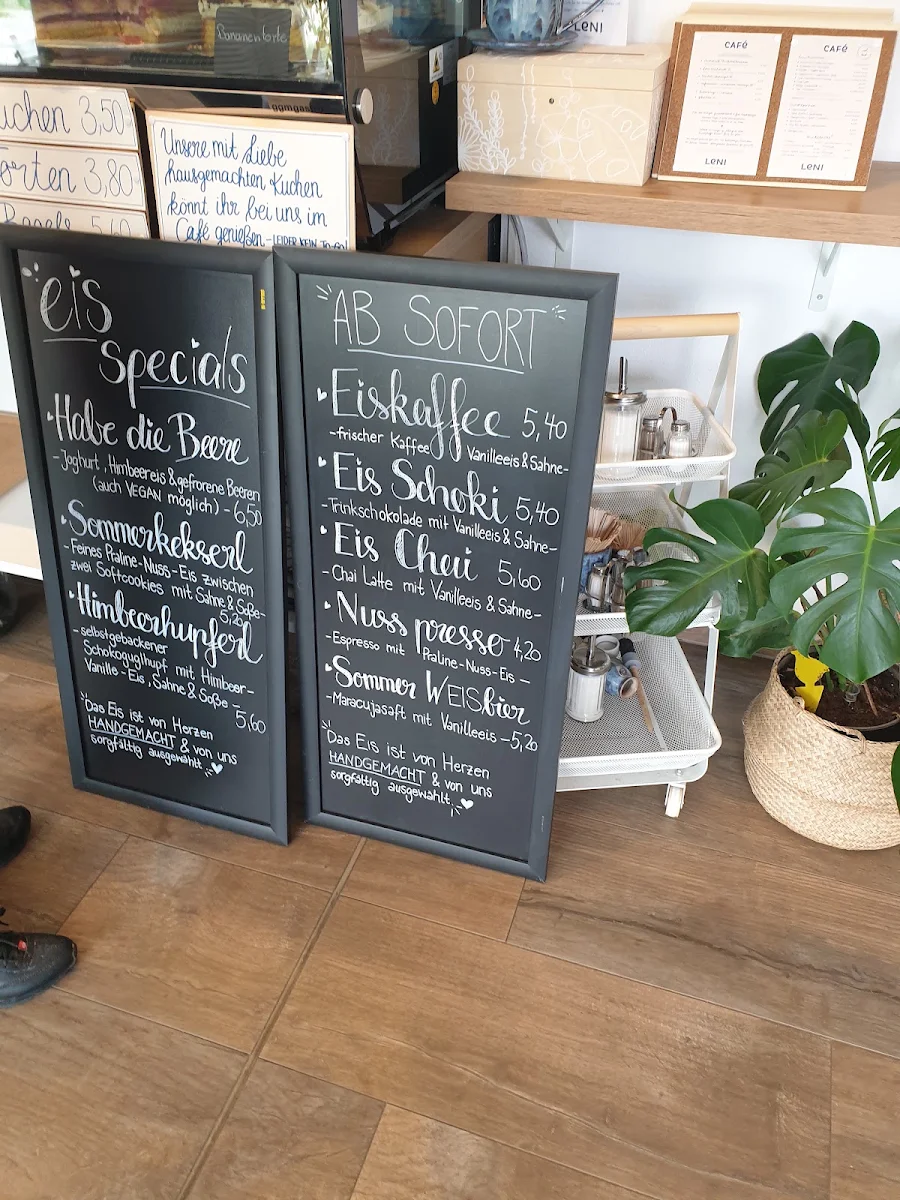 Bananentorte
LENI
ggmgas
uchen 3,50
orten 3,80
Bagels 5,40
Unsere mit Liebe
hausgemachten Kuchen
könnt ihr bei uns im
Café genießen - LEIDER KEIN TO GO!
CAFÉ
LENI
CAFÉ
LENI
eis
specials
Habe die Beere
- Joghurt, Himbeereis & gefrorene Beeren
(auch VEGAN möglich) - 6,50
Sommerkekserl
- Feines Praline-Nuss-Eis zwischen
zwei Softcookies mit Sahne & Soße -
5,20
Himbeerhupferl
- selbstgebackener
Schokoguglhupf mit Himbeer-
Vanille-Eis, Sahne & Soße -
5,60
Das Eis ist von Herzen
HANDGEMACHT & von uns
sorgfältig ausgewählt
AB SOFORT
Eiskaffee 5,40
- frischer Kaffee, Vanilleeis & Sahne -
Eis Schoki 5,40
- Trinkschokolade mit Vanilleeis & Sahne -
Eis Chai 5,60
- Chai Latte mit Vanilleeis & Sahne -
Nuss presso 4,20
- Espresso mit Praline-Nuss-Eis -
Sommer WEISbier
- Maracujasaft mit Vanilleeis - 5,20
Das Eis ist von Herzen
HANDGEMACHT & von uns
sorgfältig ausgewählt